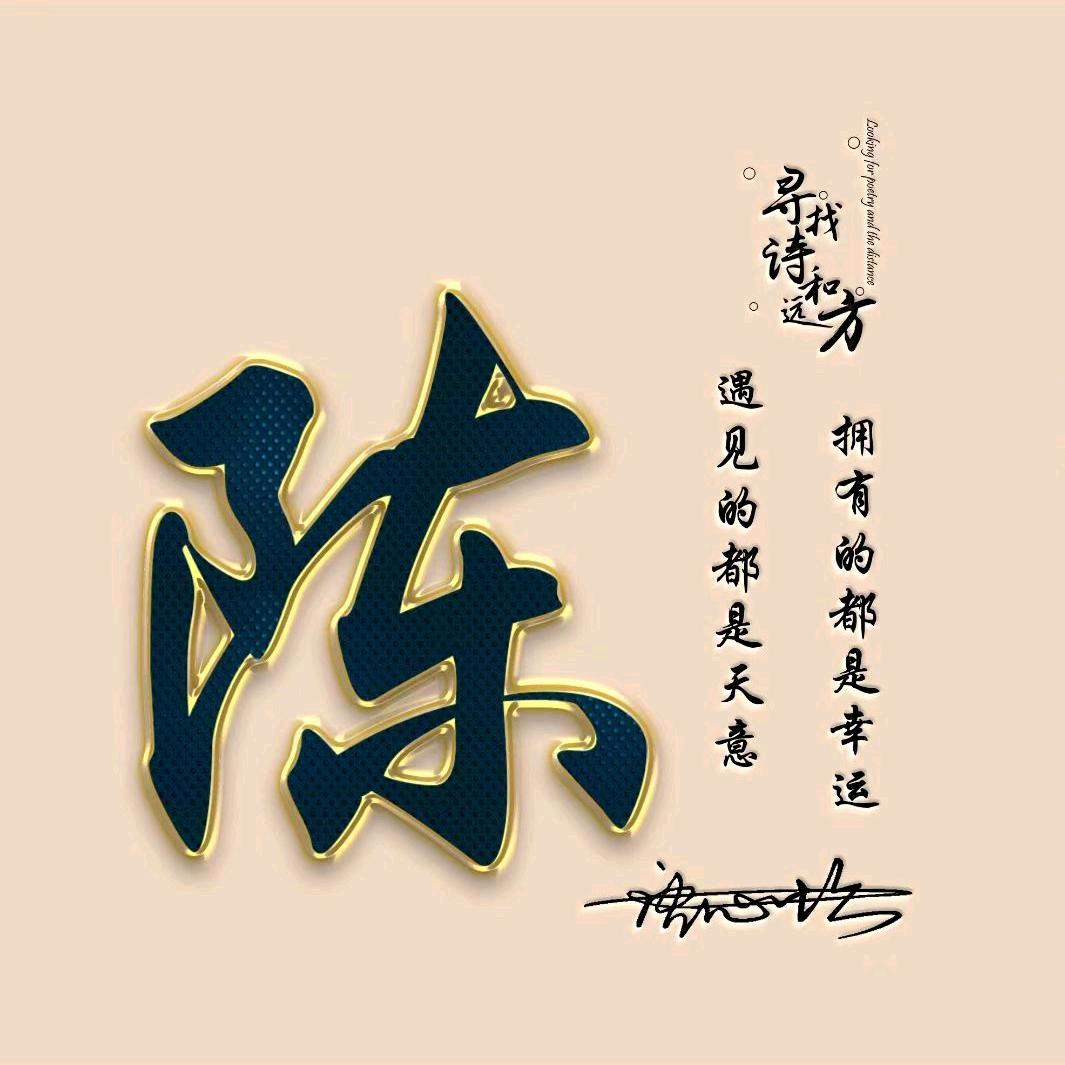 陈
寻找
诗和
远方
Looking for poetry and the distance
遇见的都是天意
拥有的都是幸运